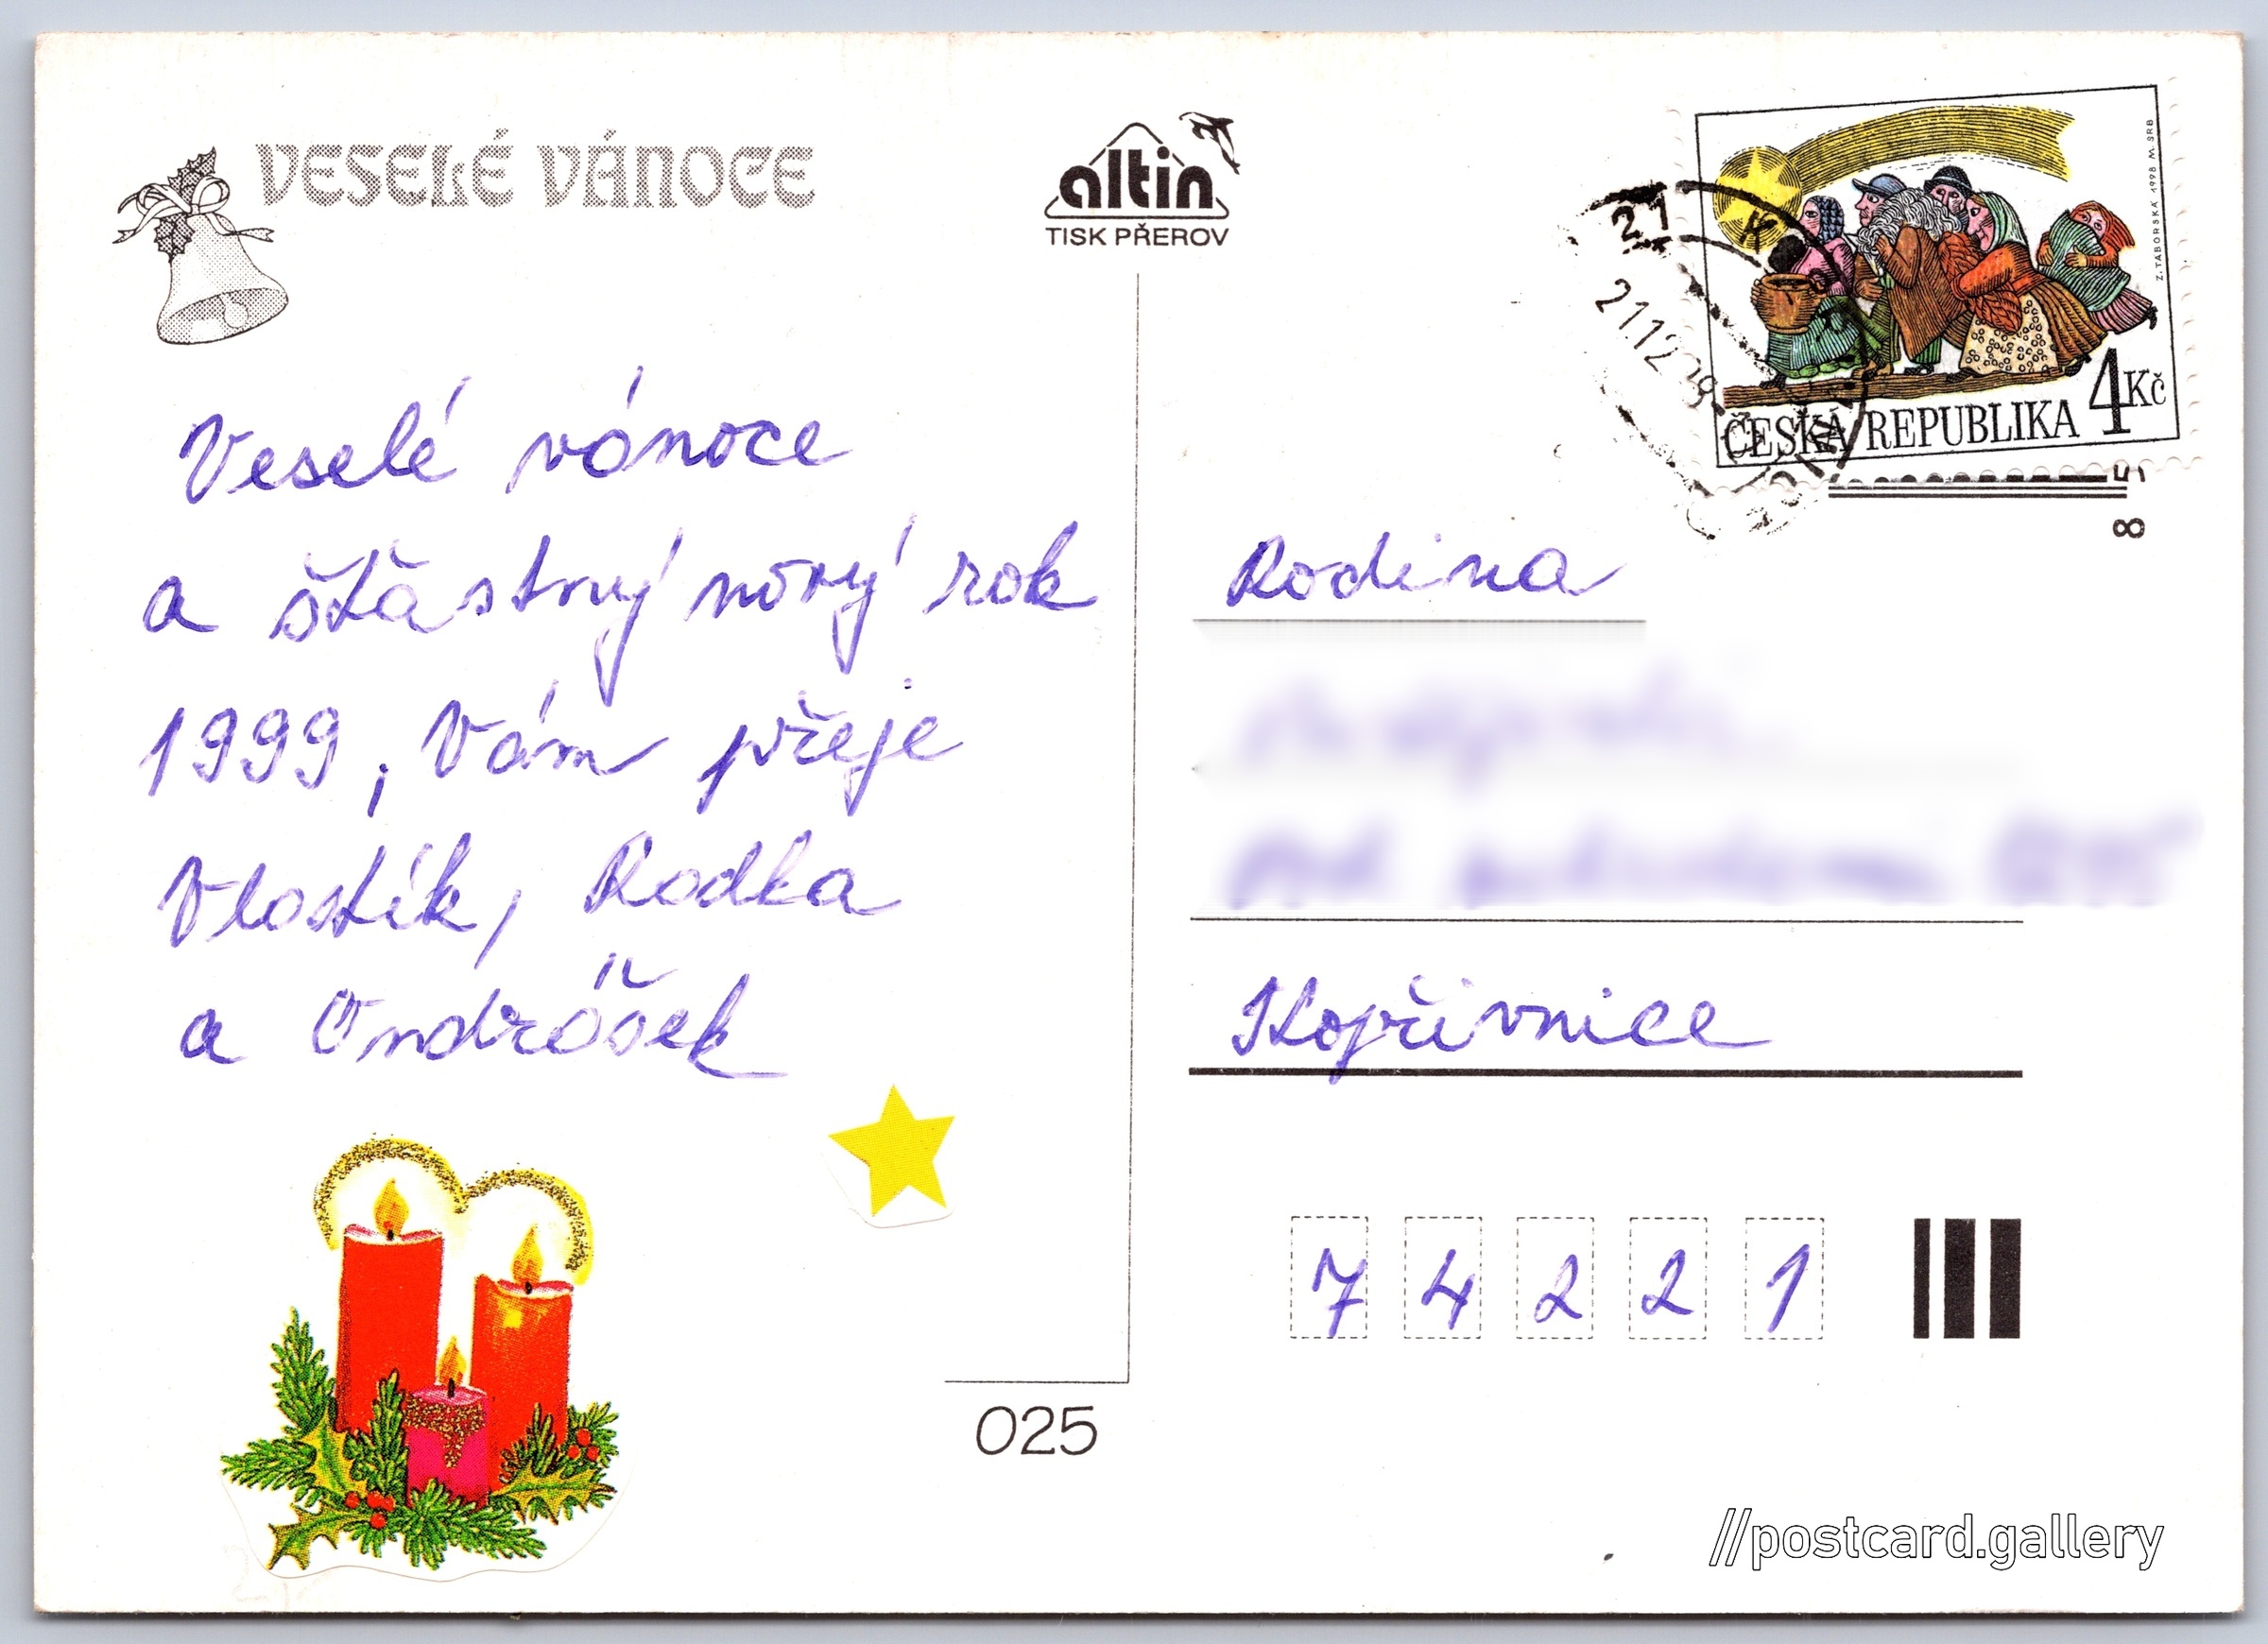 VESELÉ VÁNOCE
altin
TISK PŘEROV
Veselé vánoce
a štastný nový rok
1999, Vám přeje
Vlastík, Radka
a Ondrášek
025
Z. TÁBORSKÁ 1998 M. SRB
4Kč
ČESKÁ REPUBLIKA
21.12
Rodina
Kopřivnice
7 4 2 2 1
//postcard.gallery